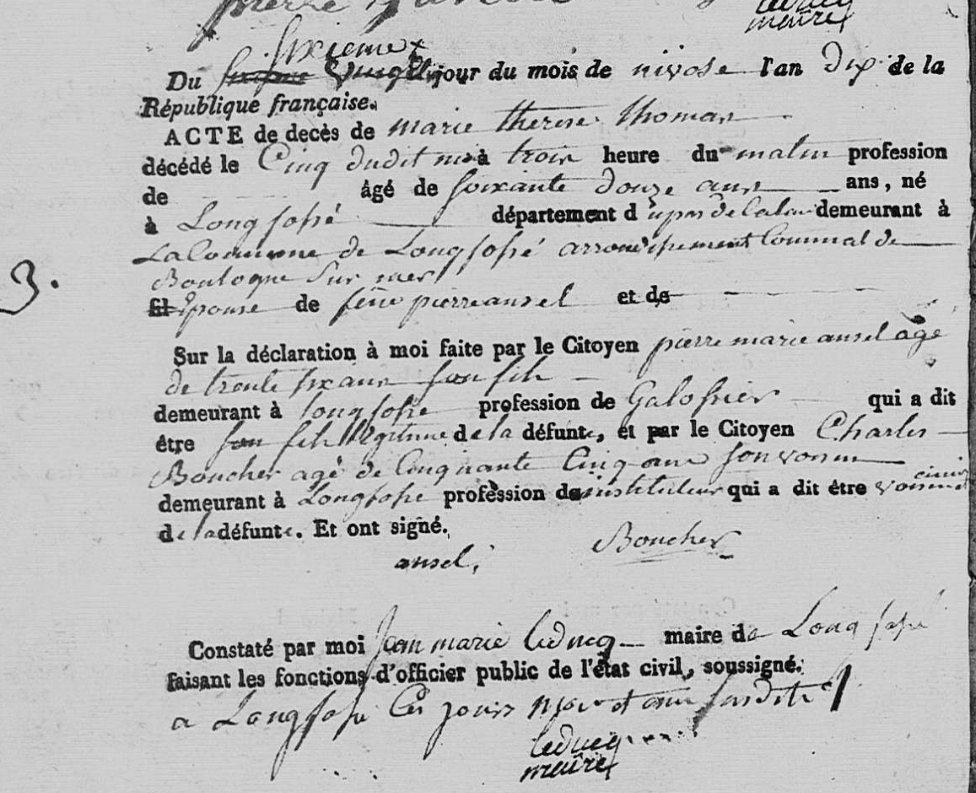 pierre
leducq
maire
sixieme
Du jour du mois de nivose l'an dix de la
République française.
ACTE de decès de marie therese thomas
décédé le Cinq dudit mois à trois heure du matin profession
de âgé de soixante douze ans ans, né
à Longfossé département d u pas de Calais demeurant à
La Commune de Longfossé arrondissement Communal de
Boulogne Sur mer
3.
fil Epouse de feüe pierre ansel et de
Sur la déclaration à moi faite par le Citoyen pierre marie ansel agé
de trente six ans son fils
demeurant à longfossé profession de qui a dit
être son fils légitime de la défunte, et par le Citoyen Charles
Boucher agé de Cinquante Cinq ans son voisin
demeurant à Longfossé profession de instituteur qui a dit être voisin
de la défunte. Et ont signé.
ansel, Boucher
Constaté par moi Jean marie leducq maire de Longfossé
faisant les fonctions d'officier public de l'état civil, soussigné.
a Longfossé Ces jours mois et an susdits
leducq
maire